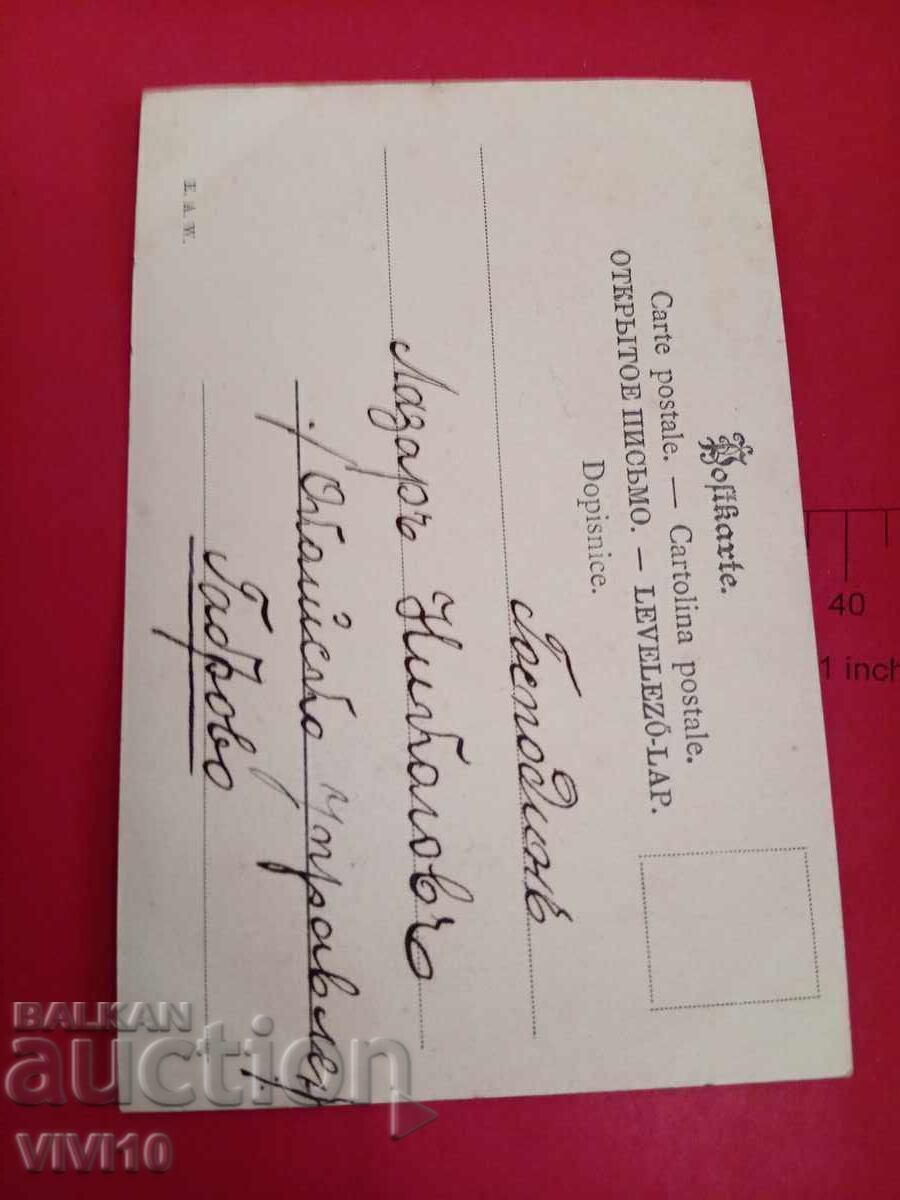 Postkarte.
Carte postale. — Cartolina postale.
ОТКРЫТОЕ ПИСЬМО. — LEVELEZŐ-LAP.
Dopisnice.
Господинъ
Лазаръ
Габрово
E. A. W.
40
1 inch
BALKAN
auction
VIVI10